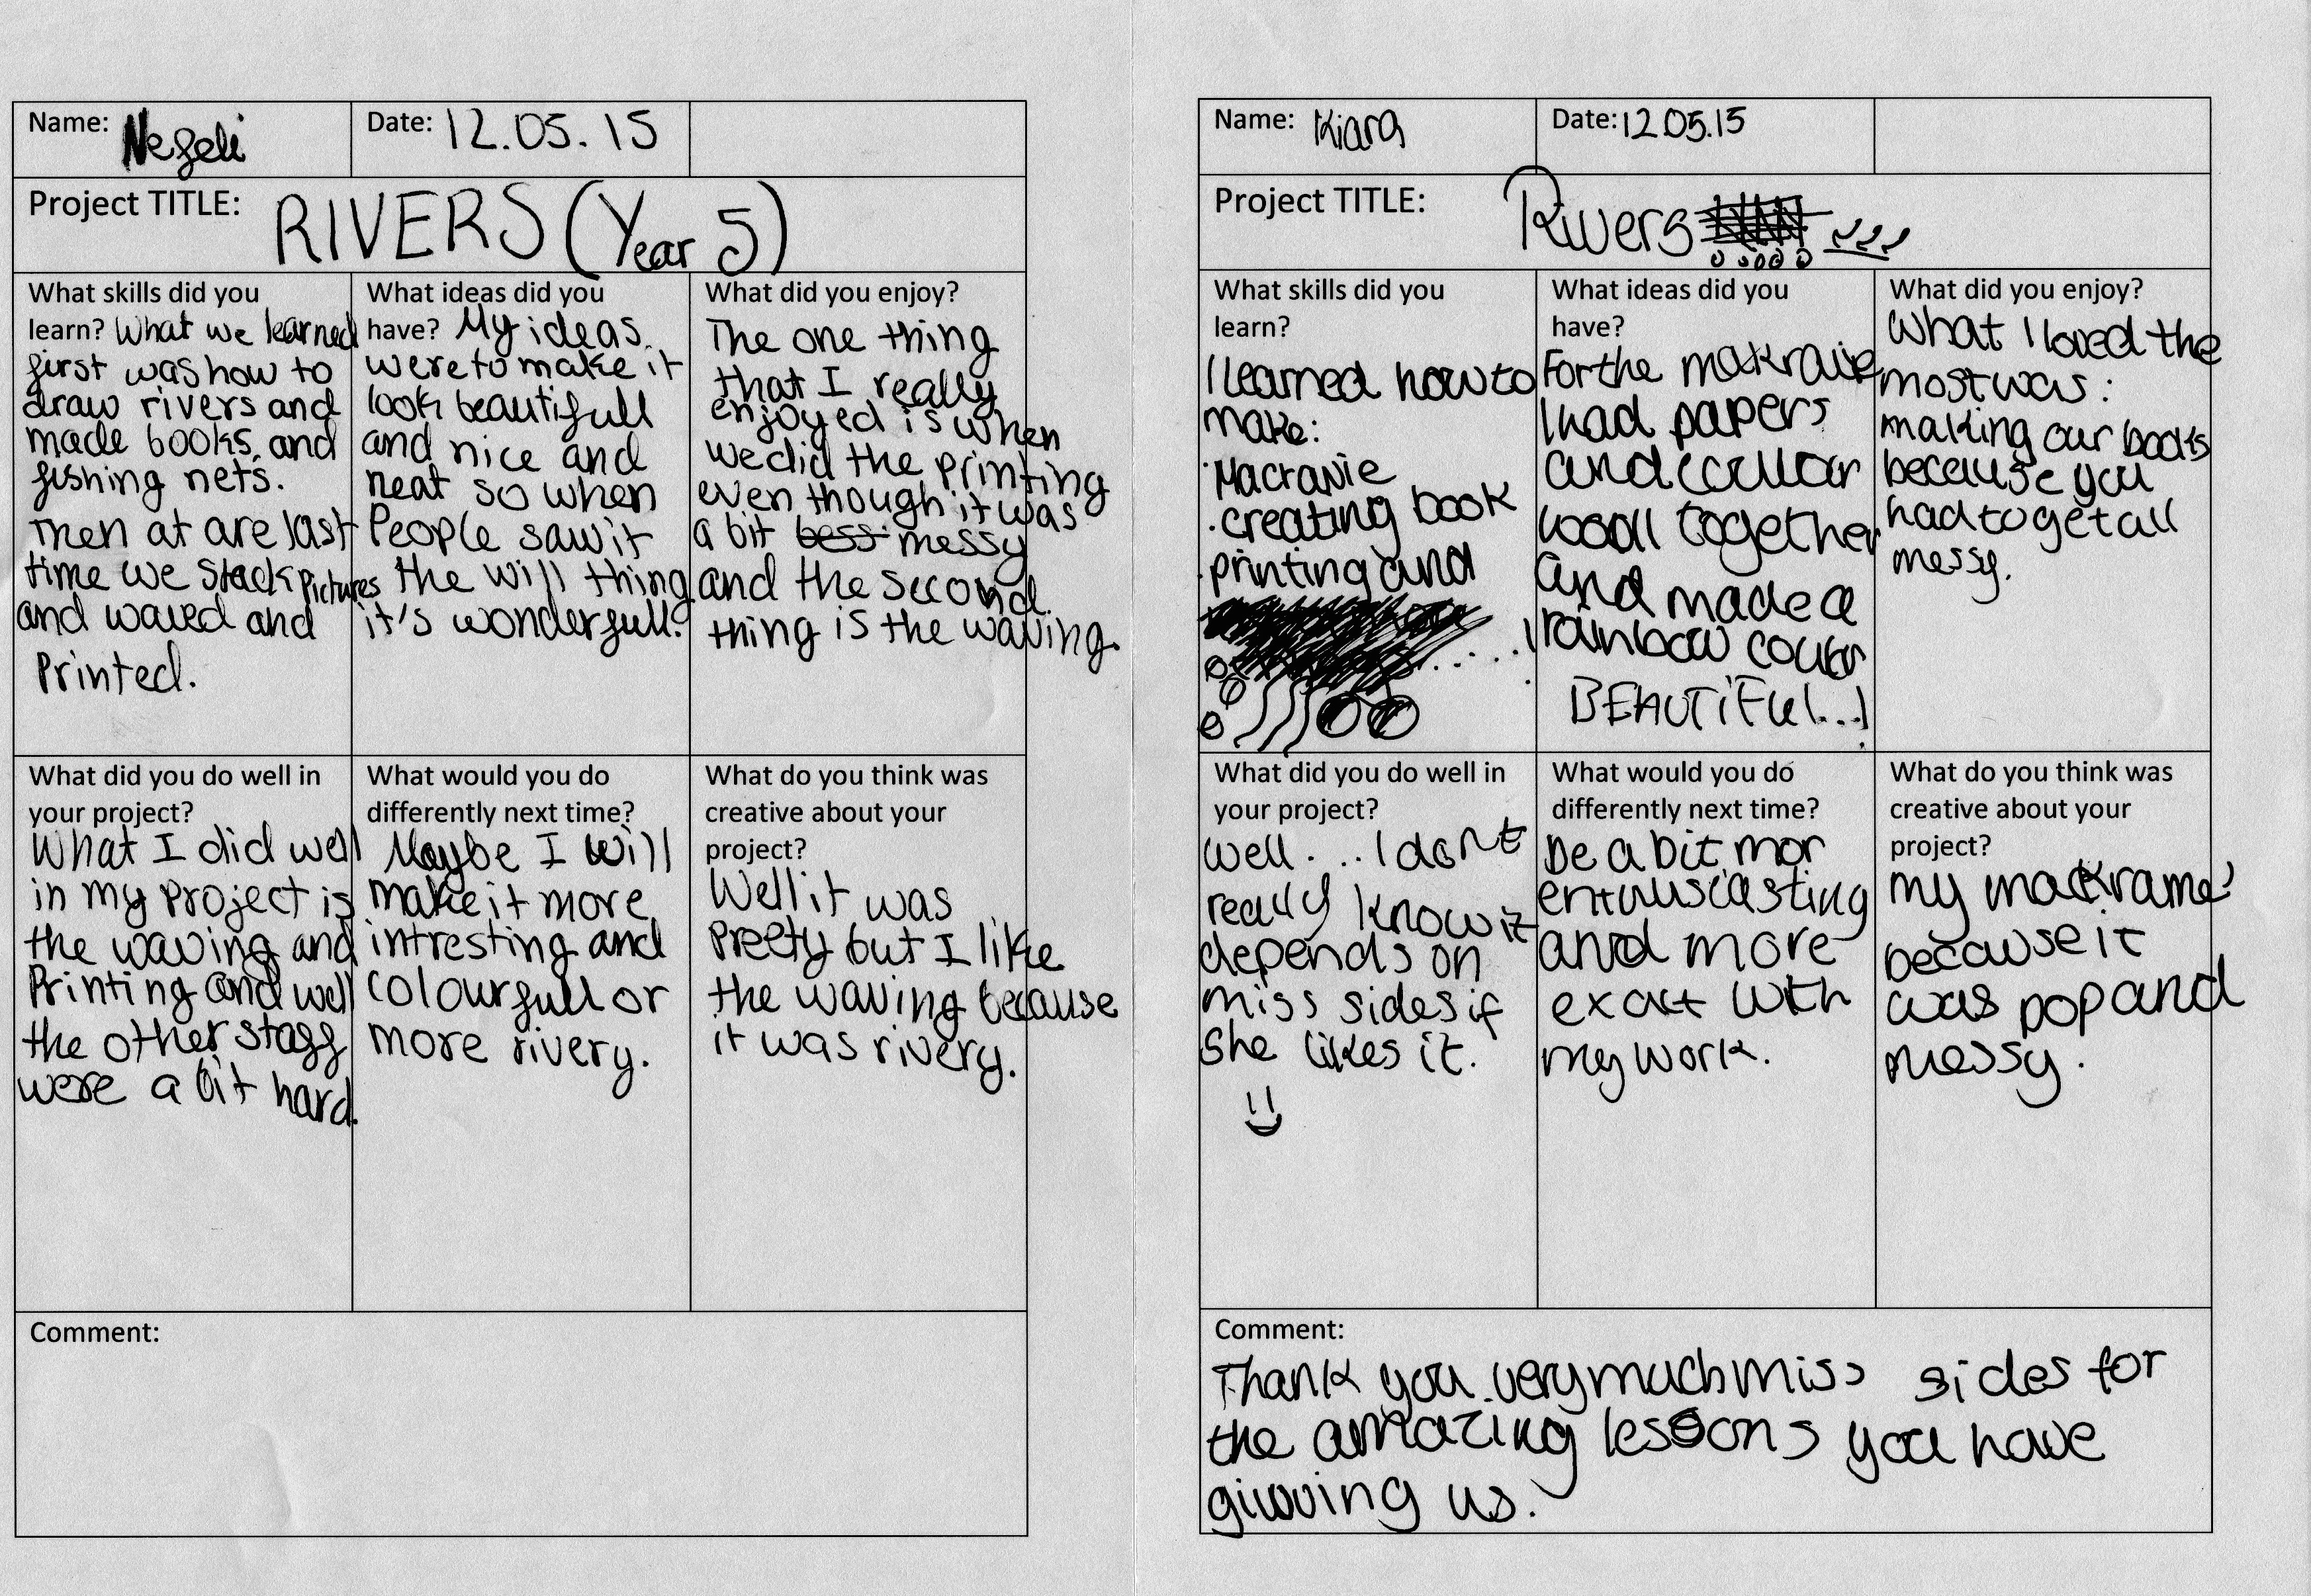 Name: Nefeli
Date: 12.05.15
Project TITLE: RIVERS (Year 5)
What skills did you
learn? What we learned
first was how to
draw rivers and
made books, and
fishing nets.
Then at are last
time we stack pictures
and waved and
Printed.
What ideas did you
have? My ideas
were to make it
look beautifull
and nice and
neat so when
People saw it
the will thing
it's wonderfull.
What did you enjoy?
The one thing
that I really
enjoyed is when
we did the printing
even though it was
a bit bess messy
and the second
thing is the waving.
What did you do well in
your project?
What I did well
in my project is
the waving and
Printing and well
the other staff
were a bit hard.
What would you do
differently next time?
Maybe I will
make it more
intresting and
colourfull or
more rivery.
What do you think was
creative about your
project?
Well it was
preety but I like
the waving because
it was rivery.
Comment:
Name: Kiara
Date: 12 05.15
Project TITLE: Rivers
What skills did you
learn?
I learned how to
make:
· Macramie
· creating book
· printing and
What ideas did you
have?
For the makramie
I had papers
and coulour
wooll together
and made a
rainbow coulr
BEAUTIFUL...!
What did you enjoy?
What I loved the
most was:
making our books
because you
had to get all
messy.
What did you do well in
your project?
well... I don't
really know it
depends on
miss sides if
she likes it.
What would you do
differently next time?
Be a bit mor
enthusiasting
and more
exact with
my work.
What do you think was
creative about your
project?
my mackrame
because it
was pop and
messy.
Comment:
Thank you very much miss sides for
the amazing lessons you have
giwving us.